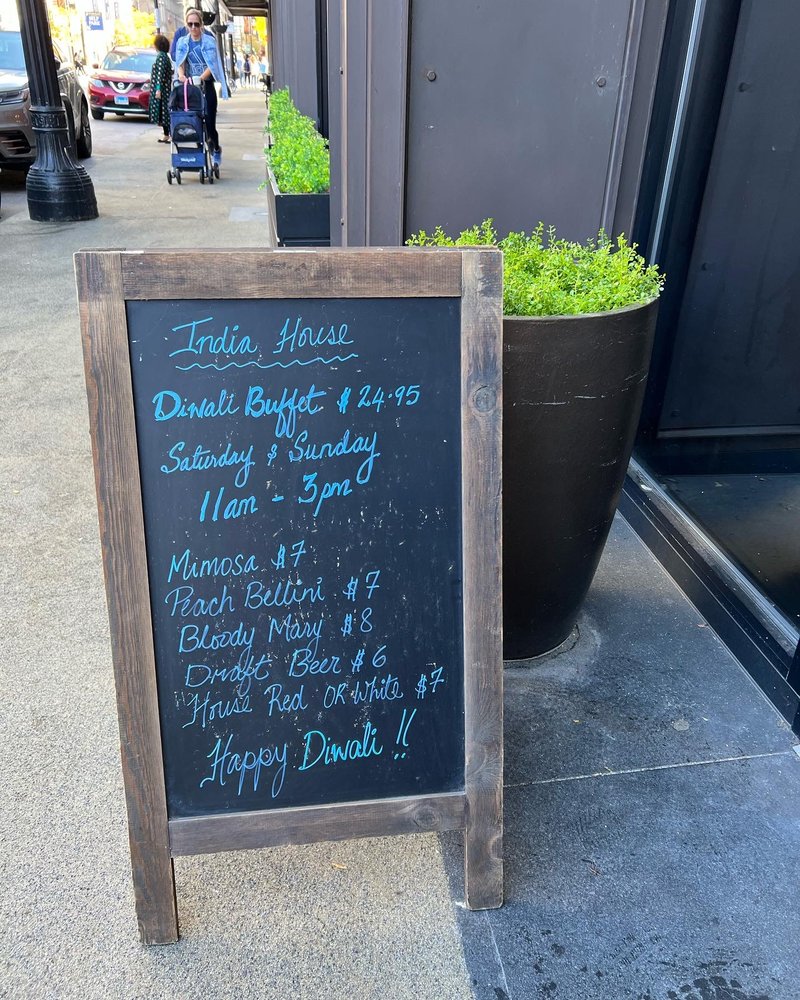 India House
Diwali Buffet $24.95
Saturday & Sunday
11am - 3pm
Mimosa $7
Peach Bellini $7
Bloody Mary $8
Draft Beer $6
House Red OR White $7
Happy Diwali !!